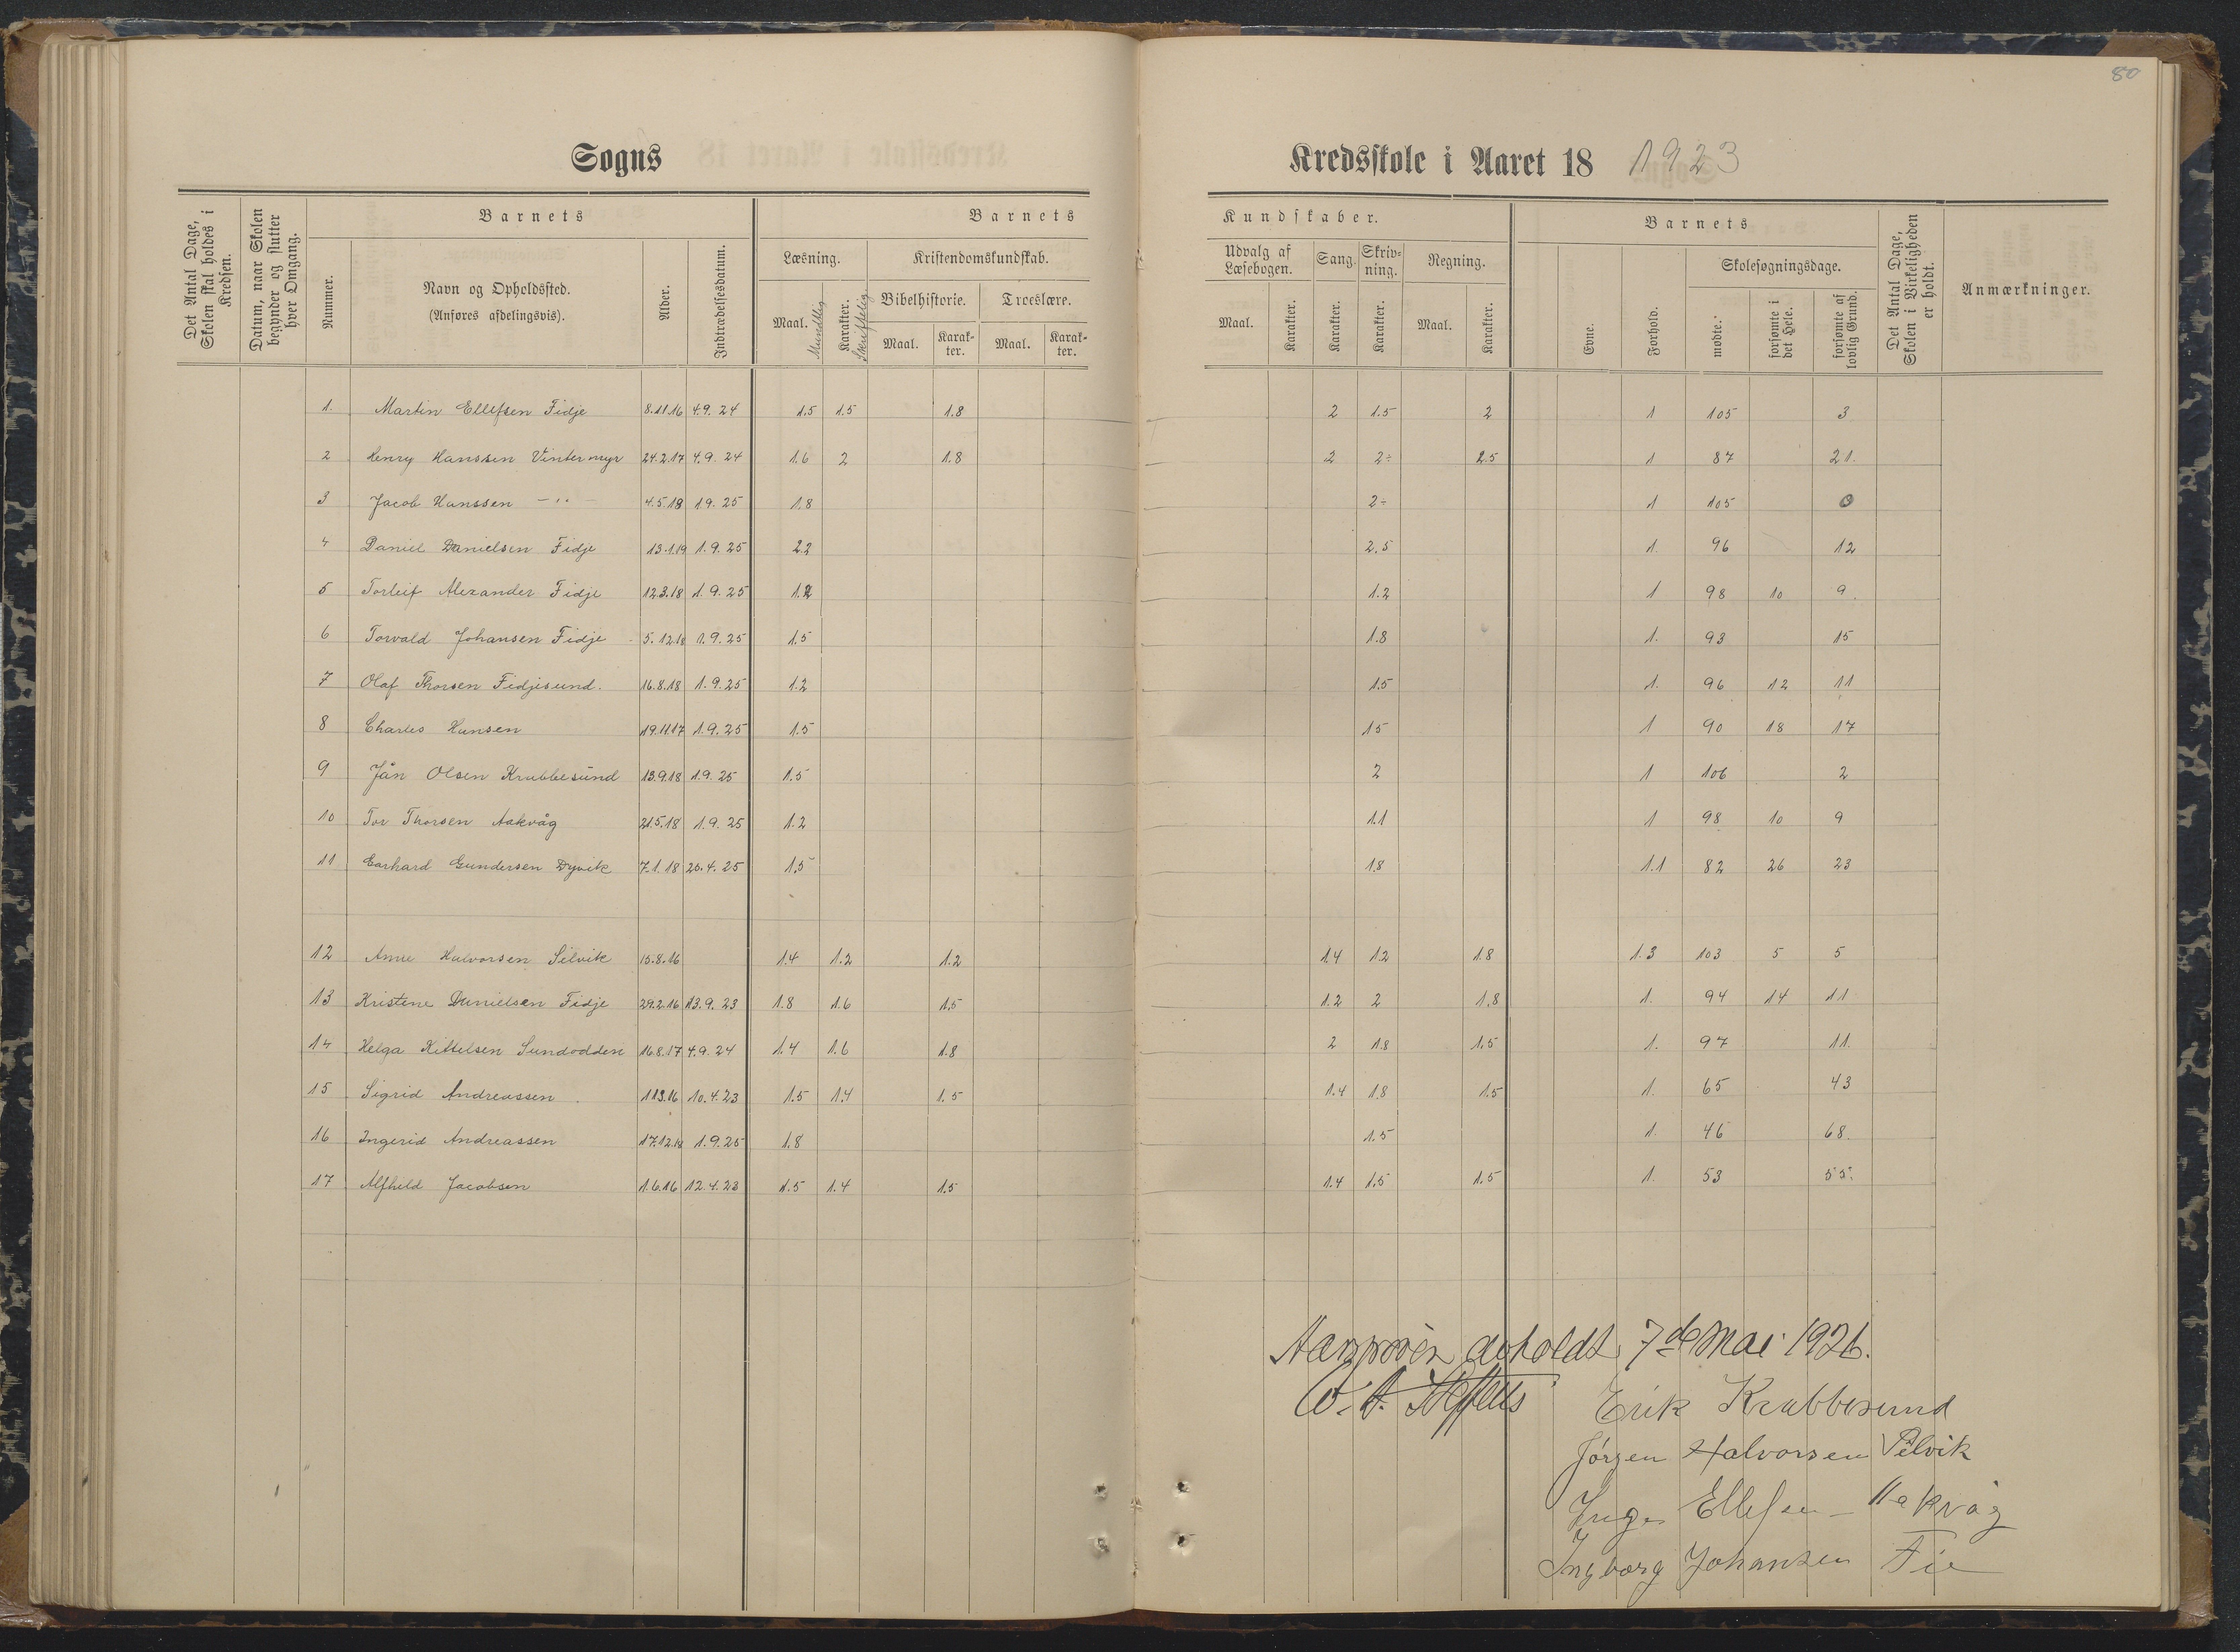 80
Sogns
Kredsskole i Aaret 18 1923
Det Antal Dage, Skolen skal holdes i Kredsen.
Datum, naar Skolen begynder og slutter hver Omgang.
Barnets
Nummer.
Navn og Opholdssted.
(Anføres afdelingsvis).
Alder.
Indtrædelsesdatum.
Barnets
Læsning.
Maal.
Mundtlig
Karakter.
Skriftelig
Kristendomskundskab.
Bibelhistorie.
Troeslære.
Maal.
Karakter.
Maal.
Karakter.
Kundskaber.
Udvalg af Læsebogen.
Maal.
Karakter.
Sang.
Karakter.
Skrivning.
Karakter.
Regning.
Maal.
Karakter.
Barnets
Evne.
Forhold.
Skolesøgningsdage.
mødte.
forsømte i det Hele.
forsømte af lovlig Grund.
Det Antal Dage, Skolen i Virkeligheden er holdt.
Anmærkninger.
1. Martin Ellefsen Fidje 8.11.16 4.9.24 1.5 1.5 1.8 2 1.5 2 1 105 3
2 Henry Hanssen Vintermyr 24.2.17 4.9.24 1.6 2 1.8 2 2÷ 2.5 1 87 21.
3 Jacob Hanssen —"— 4.5.18 1.9.25 1.8 2÷ 1 105 0
4 Daniel Danielsen Fidje 13.1.19 1.9.25 2.2 2.5 1. 96 12
5 Torleif Alexander Fidje 12.3.18 1.9.25 1.2 1.2 1 98 10 9.
6 Torvald Johansen Fidje 5.12.18 1.9.25 1.5 1.8 1. 93 15
7 Olaf Thorsen Fidjesund. 16.8.18 1.9.25 1.2 1.5 1. 96 12 11
8 Charles Hansen 19.11.17 1.9.25 1.5 15 1 90 18 17
9 Jån Olsen Krabbesund 13.9.18 1.9.25 1.5 2 1 106 2
10 Tor Thorsen Aakvåg 21.5.18 1.9.25 1.2 1.1 1 98 10 9
11 Earhard Gundersen Dyvik 7.1.18 20.4.25 1.5 1.8 1.1 82 26 23
12 Anne Halvorsen Silvik 15.8.16 1.4 1.2 1.2 1.4 1.2 1.8 1.3 103 5 5
13 Kristene Danielsen Fidje 29.2.16 13.9.23 1.8 1.6 1.5 1.2 2 1.8 1. 94 14 11
14 Helga Kittelsen Sundodden 16.8.17 4.9.24 1.4 1.6 1.8 2 1.8 1.5 1. 97 11.
15 Sigrid Andreassen 113.16 10.4.23 1.5 1.4 1.5 1.4 1.8 1.5 1. 65 43
16 Ingerid Andreassen 17.12.18 1.9.25 1.8 1.5 1. 46 68.
17 Alfhild Jacobsen 1.6.16 12.4.23 1.5 1.4 1.5 1.4 1.5 1.5 1. 53 55.
avholdt 7de Mai 1926.
Erik Krabbesund
Jörgen Halvorsen
Ellefsen — Aakvåg
Ingborg Johansen Fie